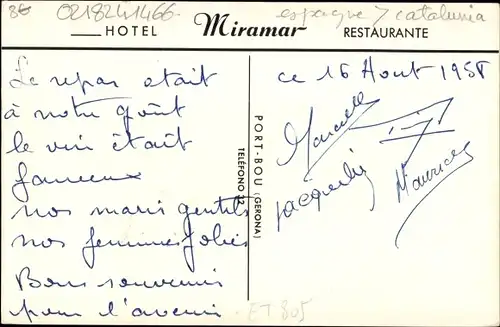 0218241466
espagne / catalunia
HOTEL Miramar RESTAURANTE
Le repas etait
à notre goût
le vin était
fameux
nos maris gentils
nos femmes jolies
Bons souvenirs
pour l'avenir
PORT-BOU (GERONA)
TELÉFONO
ce 16 Aout 1958
Marcelle
Jacqueline
Maurice
ET 805